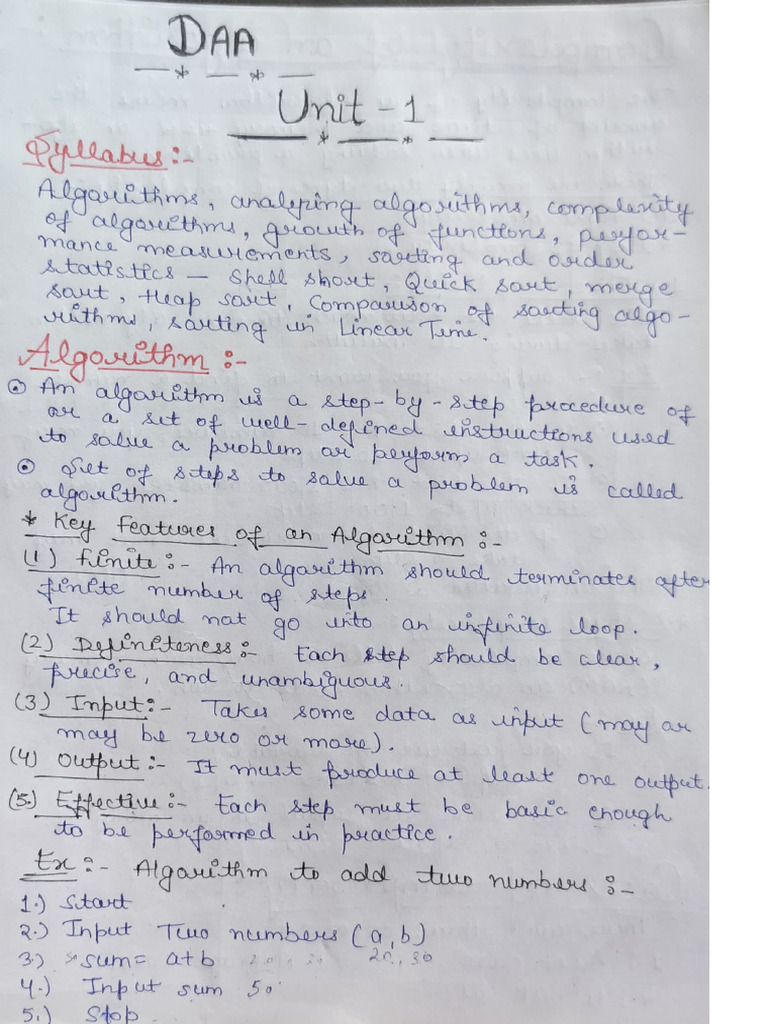 DAA
Unit - 1
Syllabus :-
Algorithms, analyzing algorithms, complexity
of algorithms, growth of functions, perfor-
mance measurements, sorting and order
statistics - Shell short, Quick sort, merge
sort, Heap sort, Comparison of sorting algo-
rithms, sorting in Linear Time.
Algorithm :-
An algorithm is a step-by-step procedure of
or a set of well-defined instructions used
to solve a problem or perform a task.
Set of steps to solve a problem is called
algorithm.
* Key features of an Algorithm :-
(1) finite :- An algorithm should terminates after
finite number of steps.
It should not go into an infinite loop.
(2) Definiteness :- Each step should be clear,
precise, and unambiguous.
(3) Input :- Takes some data as input (may or
may be zero or more).
(4) Output :- It must produce at least one output.
(5.) Effective :- Each step must be basic enough
to be performed in practice.
Ex :- Algorithm to add two numbers :-
1.) Start
2.) Input Two numbers (a, b)
3.) sum = a+b 20, 30
4.) Input sum 50
5.) Stop